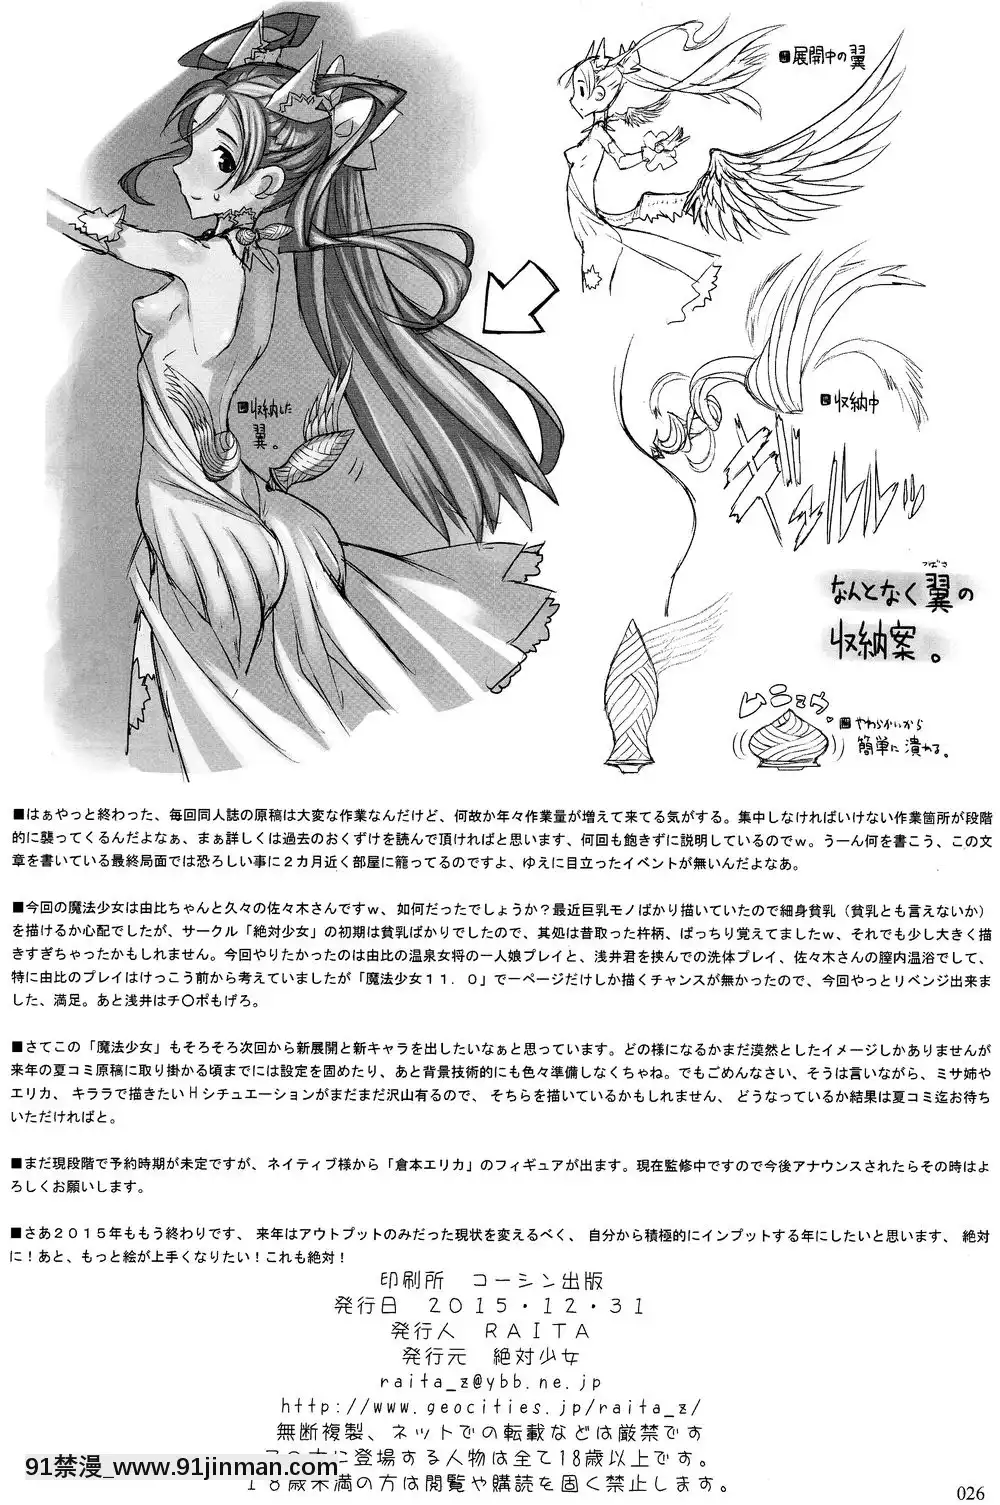 ■展開中の翼
■収納した
翼。
■収納中
ギュルルルッ
つばさ
なんとなく翼の
収納案。
ムニュウ
■やわらかいから
簡単に潰れる。
■はぁやっと終わった、毎回同人誌の原稿は大変な作業なんだけど、何故か年々作業量が増えて来てる気がする。集中しなければいけない作業箇所が段階
的に襲ってくるんだよなぁ、まぁ詳しくは過去のおくずけを読んで頂ければと思います、何回も飽きずに説明しているのでｗ。うーん何を書こう、この文
章を書いている最終局面では恐ろしい事に２カ月近く部屋に籠ってるのですよ、ゆえに目立ったイベントが無いんだよなあ。
■今回の魔法少女は由比ちゃんと久々の佐々木さんですｗ、如何だったでしょうか？最近巨乳モノばかり描いていたので細身貧乳（貧乳とも言えないか）
を描けるか心配でしたが、サークル「絶対少女」の初期は貧乳ばかりでしたので、其処は昔取った杵柄、ばっちり覚えてましたｗ、それでも少し大きく描
きすぎちゃったかもしれません。今回やりたかったのは由比の温泉女将の一人娘プレイと、浅井君を挟んでの洗体プレイ、佐々木さんの膣内温浴でして、
特に由比のプレイはけっこう前から考えていましたが「魔法少女１１．０」で一ページだけしか描くチャンスが無かったので、今回やっとリベンジ出来ま
した、満足。あと浅井はチ〇ポもげろ。
■さてこの「魔法少女」もそろそろ次回から新展開と新キャラを出したいなぁと思っています。どの様になるかまだ漠然としたイメージしかありませんが
来年の夏コミ原稿に取り掛かる頃までには設定を固めたり、あと背景技術的にも色々準備しなくちゃね。でもごめんなさい、そうは言いながら、ミサ姉や
エリカ、キララで描きたいＨシチュエーションがまだまだ沢山有るので、そちらを描いているかもしれません、どうなっているか結果は夏コミ迄お待ち
いただければと。
■まだ現段階で予約時期が未定ですが、ネイティブ様から「倉本エリカ」のフィギュアが出ます。現在監修中ですので今後アナウンスされたらその時はよ
ろしくお願いします。
■さあ２０１５年ももう終わりです、来年はアウトプットのみだった現状を変えるべく、自分から積極的にインプットする年にしたいと思います、絶対
に！あと、もっと絵が上手くなりたい！これも絶対！
印刷所　コーシン出版
発行日　２０１５・１２・３１
発行人　ＲＡＩＴＡ
発行元　絶対少女
raita_z@ybb.ne.jp
http://www.geocities.jp/raita_z/
無断複製、ネットでの転載などは厳禁です
に登場する人物は全て18歳以上です。
１８歳未満の方は閲覧や購読を固く禁止します。
91禁漫_www.91jinman.com
026